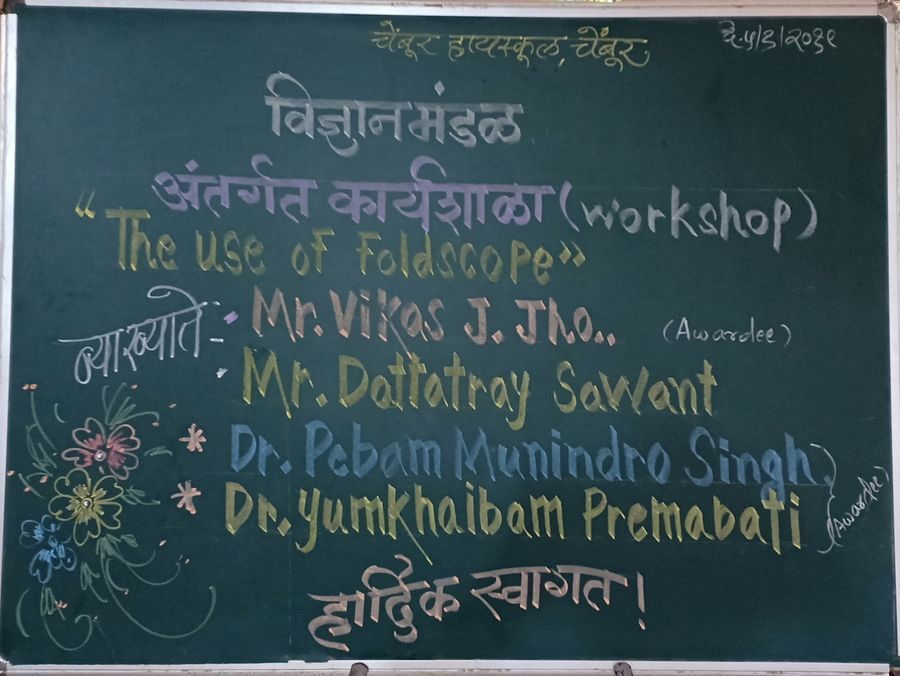 चेंबूर हायस्कूल, चेंबूर.
दि.५/९/२०१९
विज्ञान मंडळ
अंतर्गत कार्यशाळा (workshop)
“The use of Foldscope”
व्याख्याते :- Mr. Vikas J. Jho.. (Awardee)
Mr. Dattatray Sawant
* Dr. Pebam Munindro Singh
* Dr. Yumkhaibam Premabati (Awardee)
हार्दिक स्वागत!